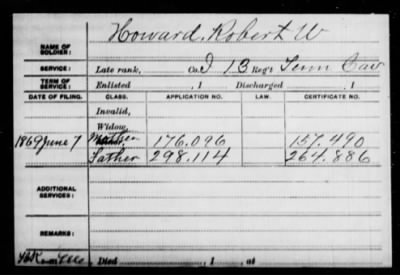 Howard, Robert W
NAME OF SOLDIER:
SERVICE: Late rank, Co. I 13 Reg't Tenn Cav
TERM OF SERVICE: Enlisted , 1 Discharged , 1
DATE OF FILING. CLASS. APPLICATION NO. LAW. CERTIFICATE NO.
Invalid,
Widow,
1869 June 7 Mother 176.096 157.490
Father 298.114 264.886
ADDITIONAL SERVICES:
REMARKS:
Died , 1 , at